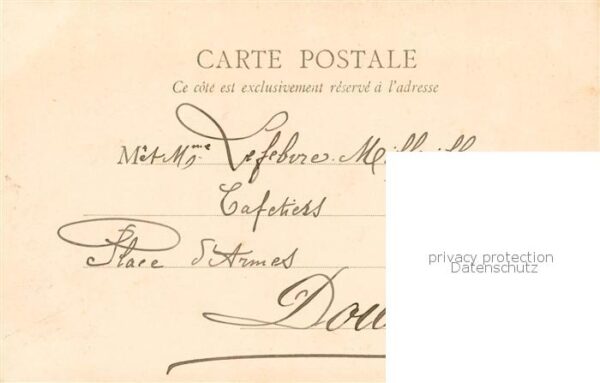 CARTE POSTALE
Ce côté est exclusivement réservé à l'adresse
M et Mme Lefebvre
Cafetiers
privacy protection
Datenschutz
Place d'Armes
Dou